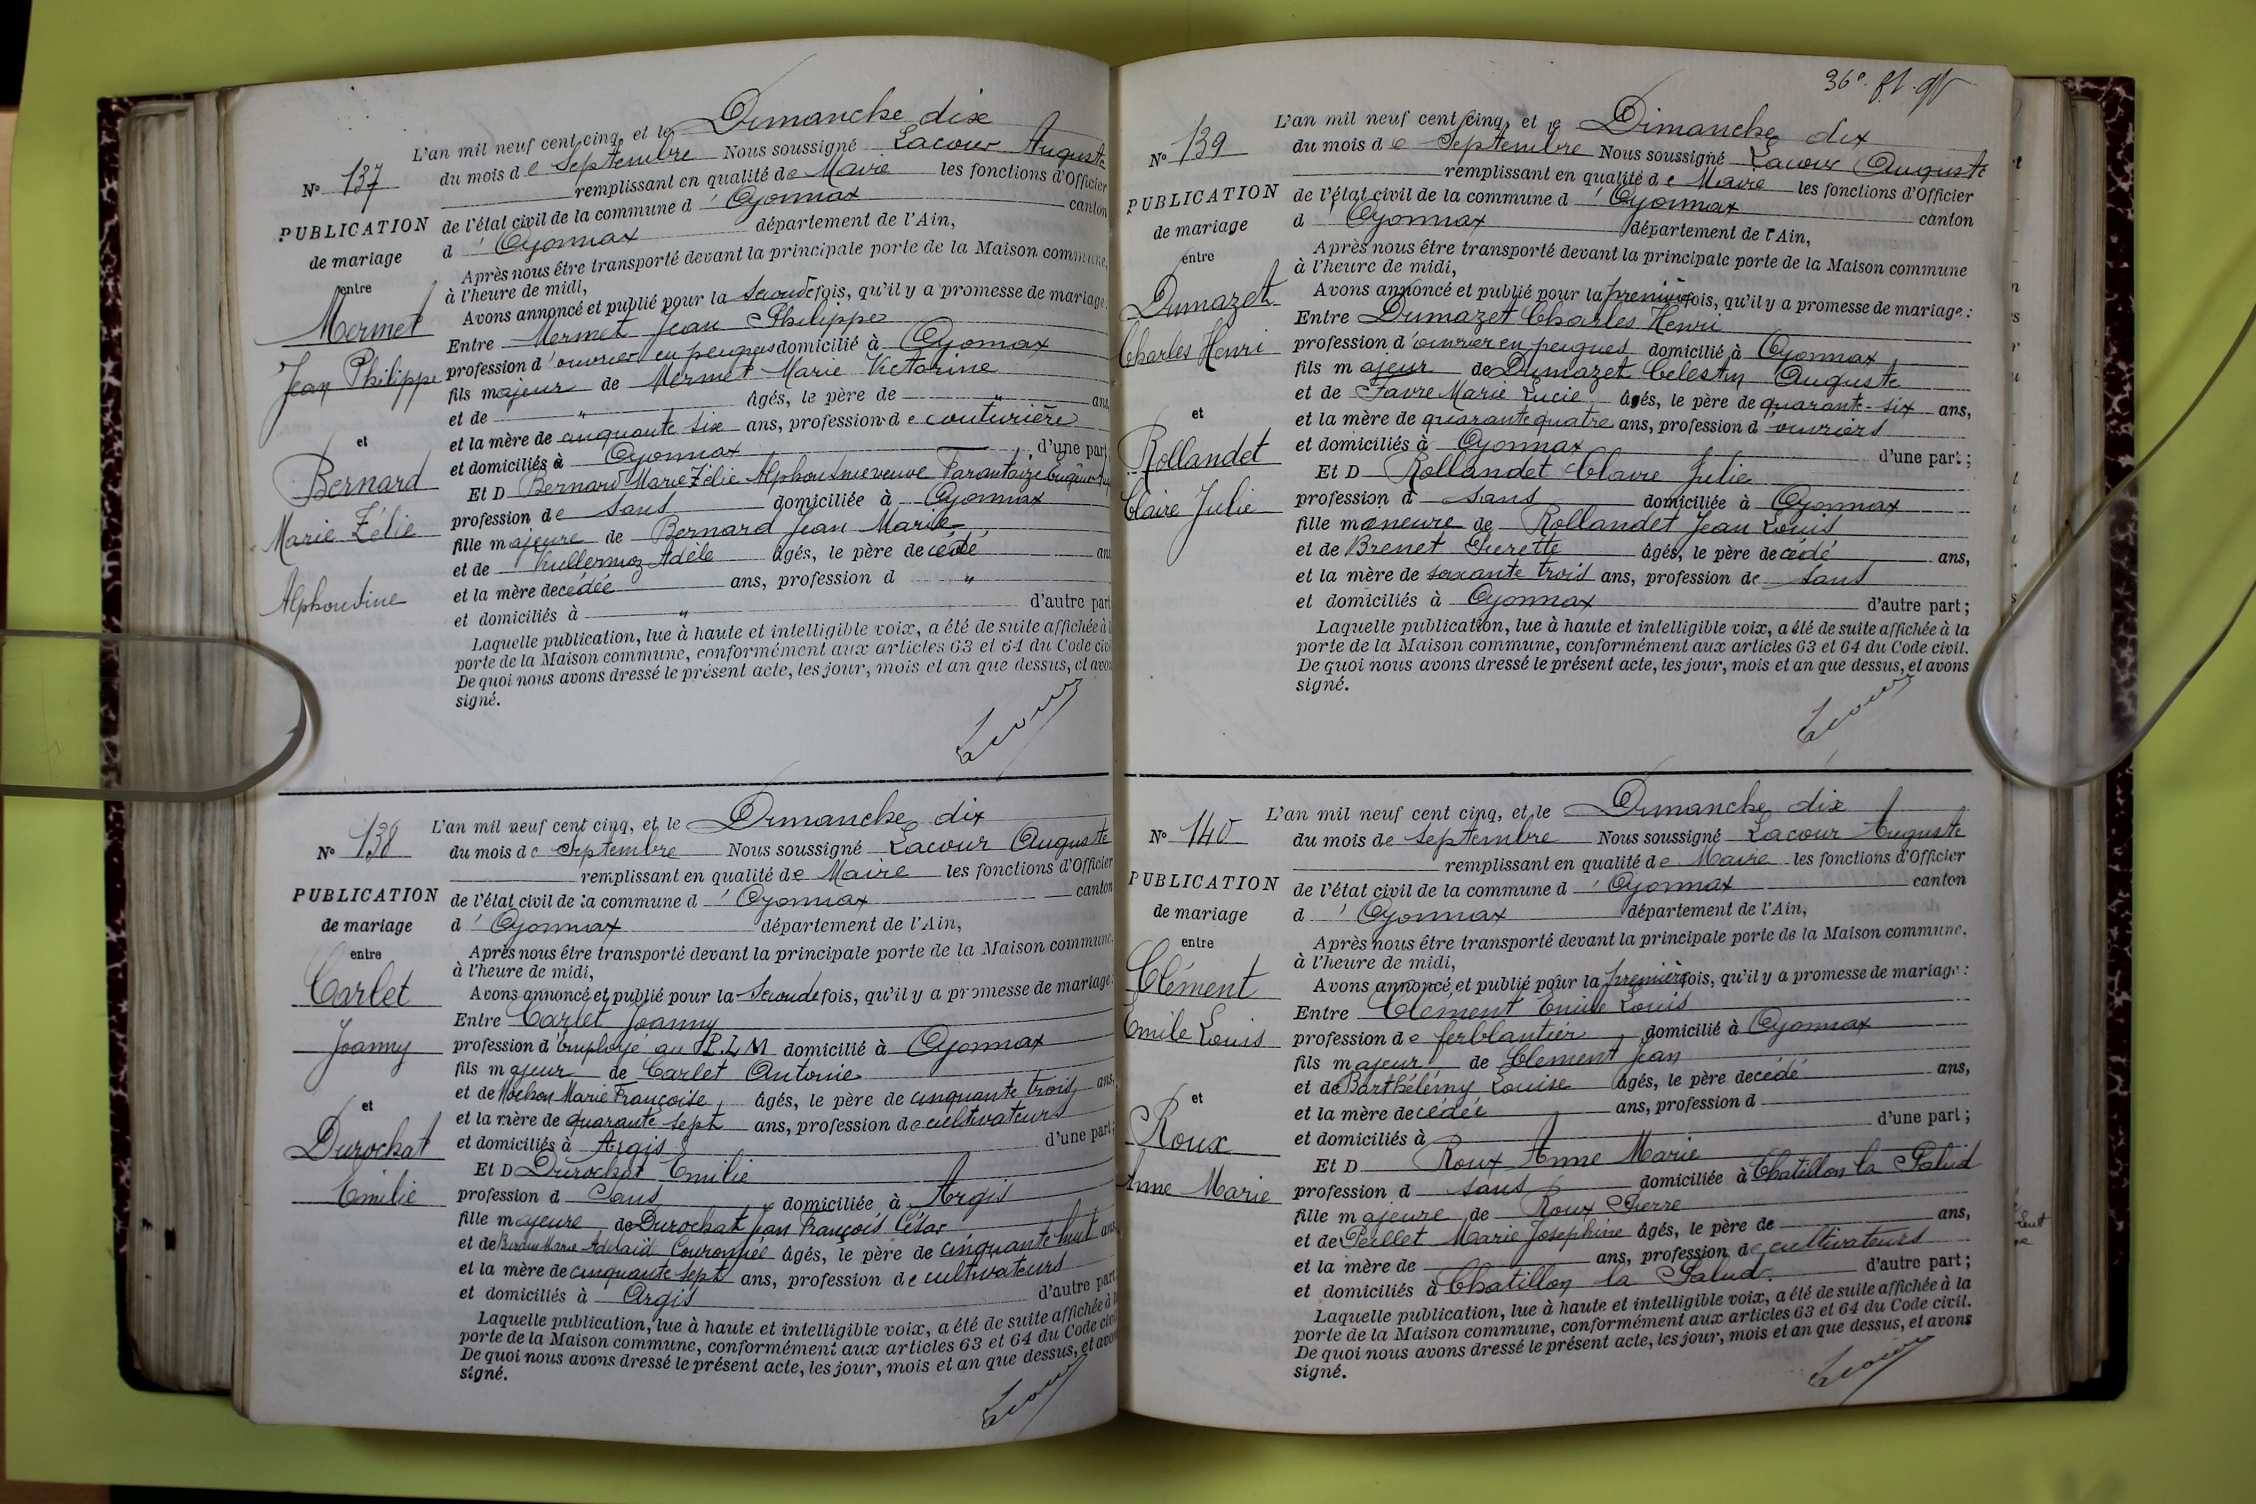 N° 137
PUBLICATION
de mariage
entre
Mermet
Jean Philippe
et
Bernard
Marie Zélie
Alphonsine
L'an mil neuf cent cinq, et le Dimanche dix
du mois de Septembre Nous soussigné Lacour Auguste
remplissant en qualité de Maire les fonctions d'Officier
de l'état civil de la commune d'Oyonnax canton
d'Oyonnax département de l'Ain,
Après nous être transporté devant la principale porte de la Maison commune,
à l'heure de midi,
Avons annoncé et publié pour la seconde fois, qu'il y a promesse de mariage:
Entre Mermet Jean Philippe
profession d'ouvrier en peignes domicilié à Oyonnax
fils majeur de Mermet Marie Victorine
et de " âgés, le père de " ans,
et la mère de cinquante six ans, profession de couturière
et domiciliés à Oyonnax d'une part;
Et D Bernard Marie Zélie Alphonsine veuve Tarantaize
profession de sans domiciliée à Oyonnax
fille majeure de Bernard Jean Marie
et de Vuillermoz Adèle âgés, le père decédé an
et la mère decédée ans, profession d "
et domiciliés à " d'autre part
Laquelle publication, lue à haute et intelligible voix, a été de suite affichée à l
porte de la Maison commune, conformément aux articles 63 et 64 du Code civi
De quoi nous avons dressé le présent acte, les jour, mois et an que dessus, et avon
signé.
Lacour
N° 138
PUBLICATION
de mariage
entre
Carlet
Joanny
et
Durochat
Emilie
L'an mil neuf cent cinq, et le Dimanche dix
du mois de Septembre Nous soussigné Lacour Auguste
remplissant en qualité de Maire les fonctions d'Officier
de l'état civil de la commune d'Oyonnax canton
d'Oyonnax département de l'Ain,
Après nous être transporté devant la principale porte de la Maison commune,
à l'heure de midi,
Avons annoncé et publié pour la seconde fois, qu'il y a promesse de mariage:
Entre Carlet Joanny
profession d'employé au P.L.M domicilié à Oyonnax
fils majeur de Carlet Antonie
et de Mochon Marie Françoise âgés, le père de cinquante trois ans,
et la mère de quarante sept ans, profession de cultivateurs
et domiciliés à Argis d'une part;
Et D Durochat Emilie
profession d Sans domiciliée à Argis
fille majeure de Durochat Jean François César
et de Marie Adelaïd Couronnée âgés, le père de cinquante huit ans,
et la mère de cinquante sept ans, profession de cultivateurs
et domiciliés à Argis d'autre part
Laquelle publication, lue à haute et intelligible voix, a été de suite affichée à l
porte de la Maison commune, conformément aux articles 63 et 64 du Code civi
De quoi nous avons dressé le présent acte, les jour, mois et an que dessus, et avon
signé.
Lacour
36e
N° 139
PUBLICATION
de mariage
entre
Dumazet
Charles Henri
et
Rollandet
Claire Julie
L'an mil neuf cent cinq, et le Dimanche dix
du mois de Septembre Nous soussigné Lacour Auguste
remplissant en qualité de Maire les fonctions d'Officier
de l'état civil de la commune d'Oyonnax canton
d'Oyonnax département de l'Ain,
Après nous être transporté devant la principale porte de la Maison commune
à l'heure de midi,
Avons annoncé et publié pour la première fois, qu'il y a promesse de mariage:
Entre Dumazet Charles Henri
profession d'ouvrier en peignes domicilié à Oyonnax
fils majeur de Dumazet Celestin Auguste
et de Favre Marie Lucie âgés, le père de quarante-six ans,
et la mère de quarante quatre ans, profession d'ouvriers
et domiciliés à Oyonnax d'une part;
Et D Rollandet Claire Julie
profession d sans domiciliée à Oyonnax
fille mineure de Rollandet Jean Louis
et de Brenet Pierette âgés, le père decédé ans,
et la mère de soixante trois ans, profession de sans
et domiciliés à Oyonnax d'autre part;
Laquelle publication, lue à haute et intelligible voix, a été de suite affichée à la
porte de la Maison commune, conformément aux articles 63 et 64 du Code civil.
De quoi nous avons dressé le présent acte, les jour, mois et an que dessus, et avons
signé.
Lacour
N° 140
PUBLICATION
de mariage
entre
Clément
Emile Louis
et
Roux
Anne Marie
L'an mil neuf cent cinq, et le Dimanche dix
du mois de septembre Nous soussigné Lacour Auguste
remplissant en qualité de Maire les fonctions d'Officier
de l'état civil de la commune d'Oyonnax canton
d'Oyonnax département de l'Ain,
Après nous être transporté devant la principale porte de la Maison commune,
à l'heure de midi,
Avons annoncé et publié pour la première fois, qu'il y a promesse de mariage:
Entre Clément Emile Louis
profession de ferblantier domicilié à Oyonnax
fils majeur de Clement Jean
et de Barthélémy Louise âgés, le père decédé ans,
et la mère decédée ans, profession d
et domiciliés à d'une part;
Et D Roux Anne Marie
profession d sans domiciliée à Chatillon la Palud
fille majeure de Roux Pierre
et de Peillet Marie Josephine âgés, le père de ans,
et la mère de ans, profession de cultivateurs
et domiciliés à Chatillon la Palud. d'autre part;
Laquelle publication, lue à haute et intelligible voix, a été de suite affichée à la
porte de la Maison commune, conformément aux articles 63 et 64 du Code civil.
De quoi nous avons dressé le présent acte, les jour, mois et an que dessus, et avons
signé.
Lacour